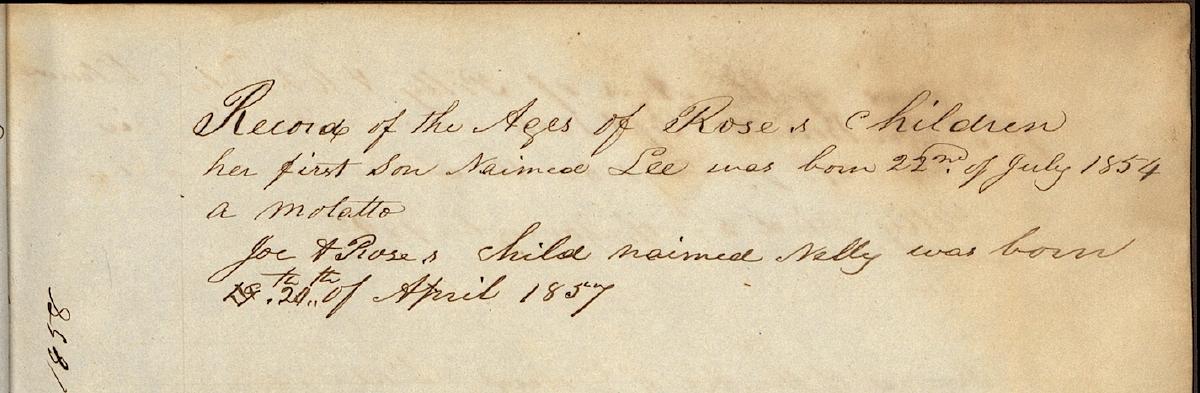 Record of the Ages of Rose,s children
her first Son Naimed Lee was born 22nd. of July 1854
a molatto
Joe & Rose,s child naimed Nelly was born
24th of April 1857
1858